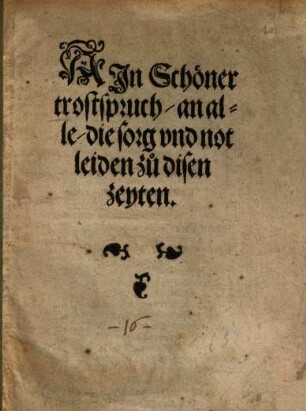 AIn Schöner
trostspruch / an al-
le / die sorg vnd not
leiden zů disen
zeyten.
-16-